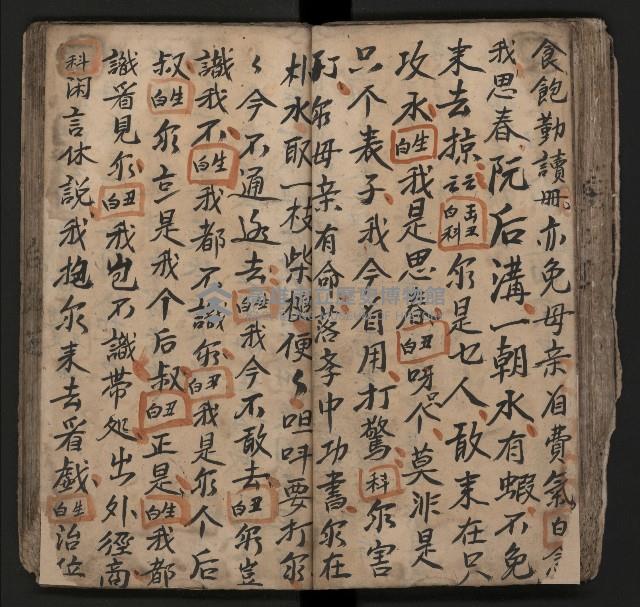 食飽勤讀冊亦免母亲自費氣白
我思春阮后溝一朝水有蝦不免
来去掠云云丑白科尔是乜人敢来在只
攻水生白我是思春丑白呀个莫非是
只个表子我今自用打驚科尔害
打尔母亲有命落孝中功書尔在
朴水取一枝柴梹便々呾呌要打尔
々今不通返去生白我今不敢去丑白尔豈
識我不生白我都不識尔丑白我是尔个后
叔生白尔亦是我个后叔丑白正是生白我都
識看見尔丑白我岂不識帶処出外徑商
科闲言休說我抱尔来去看戲生白治位
高雄市立歷史博物館